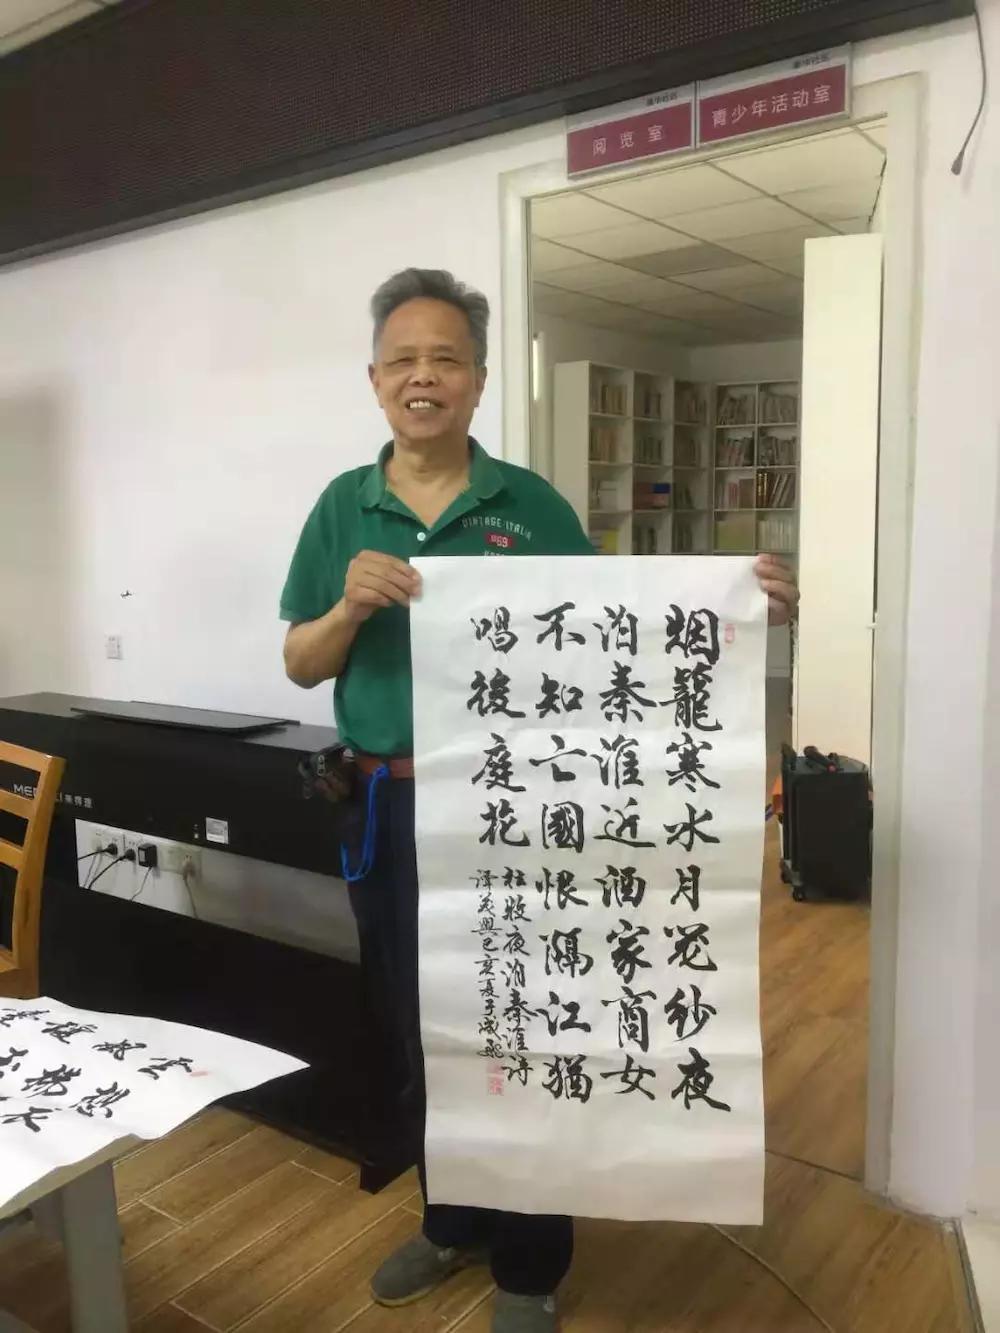 阅览室
青少年活动室
VINTAGE ITALIA
69
烟籠寒水月笼紗夜
泊秦淮近酒家商女
不知亡國恨隔江猶
唱後庭花
杜牧夜泊秦淮詩
己亥夏于
美得理